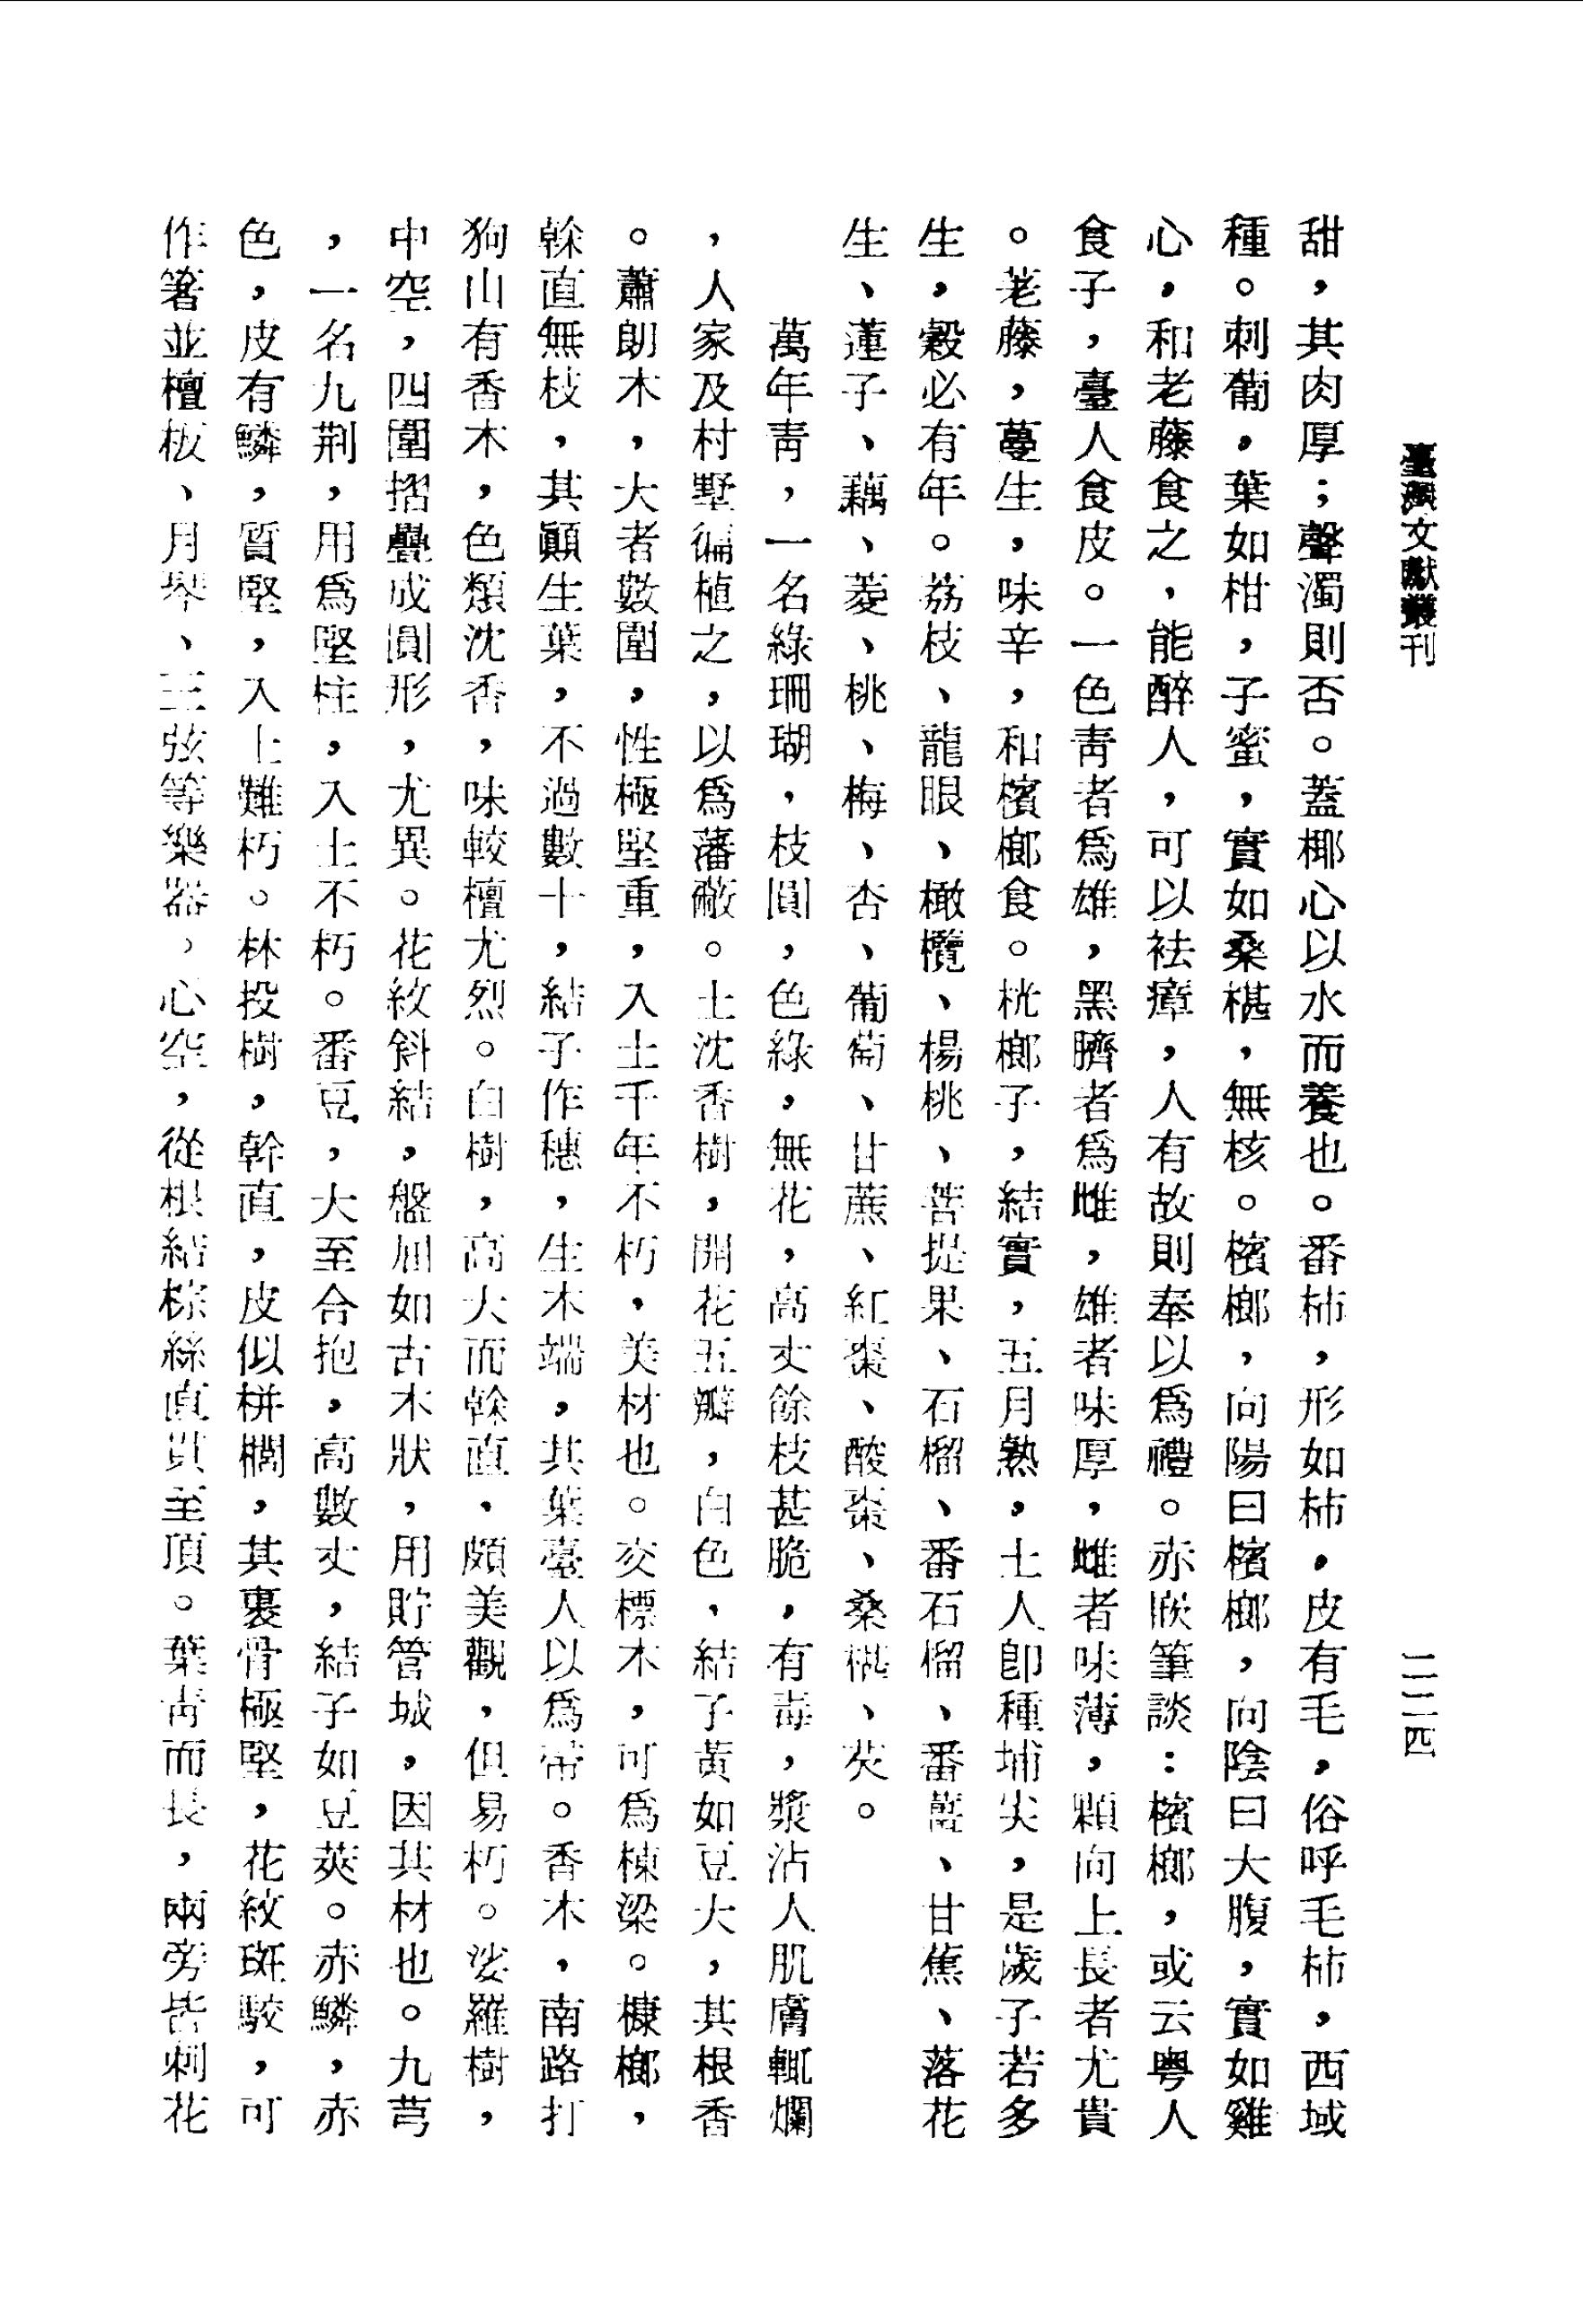 臺灣文獻叢刊
二二四
甜，其肉厚；聲濁則否。蓋椰心以水而養也。番柿，形如柿，皮有毛，俗呼毛柿，西域
種。刺葡，葉如柑，子蜜，實如桑椹，無核。檳榔，向陽曰檳榔，向陰曰大腹，實如雞
心，和老藤食之，能醉人，可以袪瘴，人有故則奉以為禮。赤嵌筆談：檳榔，或云粵人
食子，臺人食皮。一色青者為雄，黑臍者為雌，雄者味厚，雌者味薄，顆向上長者尤貴
。荖藤，蔓生，味辛，和檳榔食。桄榔子，結實，五月熟，土人卽種埔尖，是歲子若多
生，穀必有年。荔枝、龍眼、橄欖、楊桃、菩提果、石榴、番石榴、番蒜、甘蕉、落花
生、蓮子、藕、菱、桃、梅、杏、葡萄、甘蔗、紅棗、酸棗、桑椹、芡。
萬年青，一名綠珊瑚，枝圓，色綠，無花，高丈餘枝甚脆，有毒，漿沾人肌膚輒爛
，人家及村墅徧植之，以為藩蔽。土沈香樹，開花五瓣，白色，結子黃如豆大，其根香
。蕭朗木，大者數圍，性極堅重，入土千年不朽，美材也。交標木，可為棟梁。槺榔，
榦直無枝，其顚生葉，不過數十，結子作穗，生木端，其葉臺人以為帚。香木，南路打
狗山有香木，色類沈香，味較檀尤烈。白樹，高大而榦直，頗美觀，但易朽。娑羅樹，
中空，四圍摺疊成圓形，尤異。花紋斜結，盤屈如古木狀，用貯管城，因其材也。九芎
，一名九荆，用為堅柱，入土不朽。番豆，大至合抱，高數丈，結子如豆莢。赤鱗，赤
色，皮有鱗，質堅，入土難朽。林投樹，幹直，皮似栟櫚，其裏骨極堅，花紋斑駁，可
作箸並檀板、月琴、三弦等樂器，心空，從根結棕絲直貫至頂。葉青而長，兩旁皆刺花